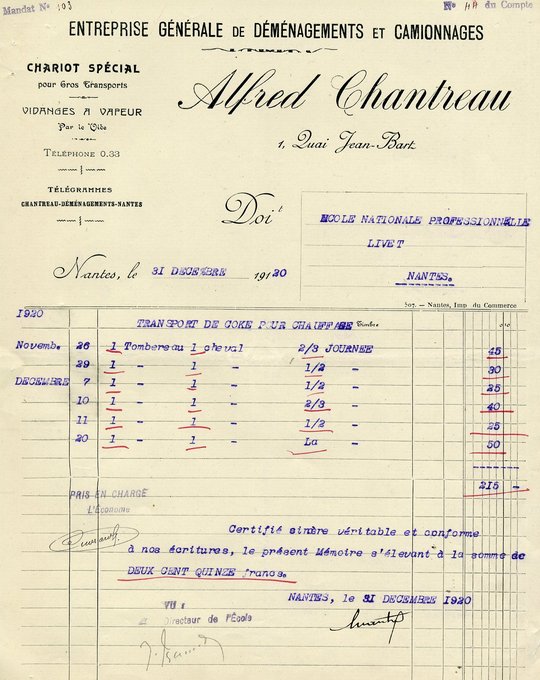 Mandat Nº 103
Nº 4A du Compte
ENTREPRISE GÉNÉRALE DE DÉMÉNAGEMENTS ET CAMIONNAGES
CHARIOT SPÉCIAL
pour Gros Transports
VIDANGES A VAPEUR
Par le Vide
TÉLÉPHONE 0.33
TÉLÉGRAMMES
CHANTREAU-DÉMÉNAGEMENTS-NANTES
Alfred Chantreau
1, Quai Jean-Bart
Doit
ECOLE NATIONALE PROFESSIONNELLE
LIVET
NANTES.
Nantes, le 31 DECEMBRE 19120
507. — Nantes, Imp. du Commerce
1920
TRANSPORT DE COKE POUR CHAUFFAGE Timbre
Novemb. 26 1 Tombereau 1 cheval 2/3 JOURNEE 45
29 1 - 1 - 1/2 - 30
DECEMBRE 7 1 - 1 - 1/2 - 25
10 1 - 1 - 2/3 - 40
11 1 - 1 - 1/2 - 25
20 1 - 1 - La - 50
-------
215 -
PRIS EN CHARGE
L'Économe
Certifié sinère véritable et conforme
à nos écritures, le présent Mémoire s'élevant à la somme de
DEUX CENT QUINZE francs.
NANTES, le 31 DECEMBRE 1920
VU :
Directeur de l'École